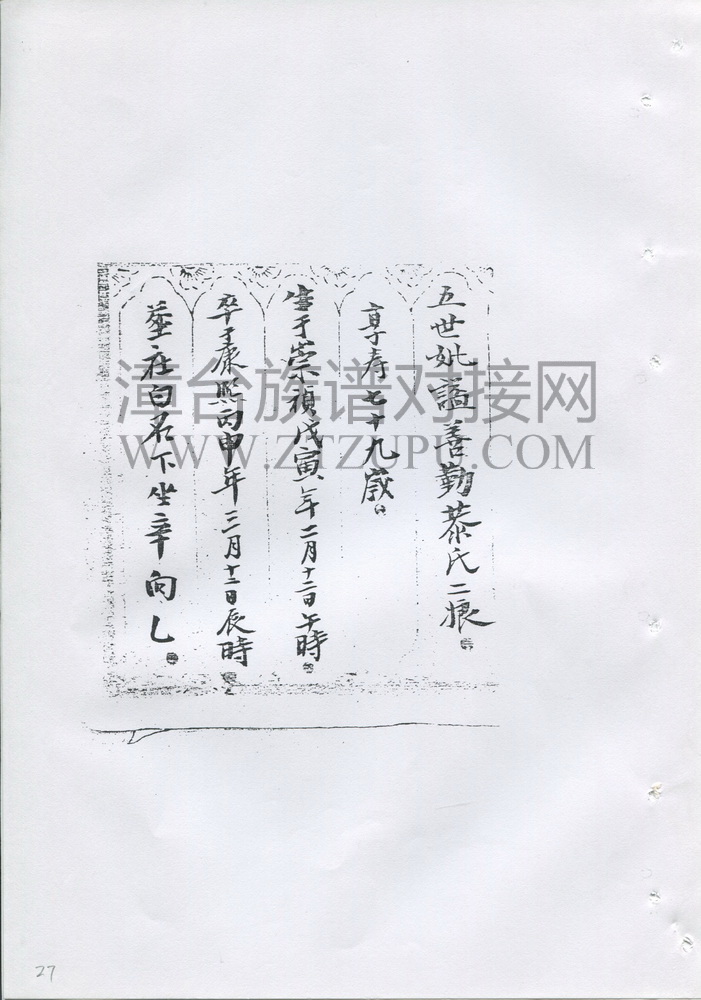 五世妣謚善勤蔡氏二娘
享寿七十九歲
生于崇禎戊寅年二月十二日午時
卒于康熙丙申年三月十二日辰時
塟在白名下坐辛向乙
漳台族谱对接网
WWW.ZTZUPU.COM
27